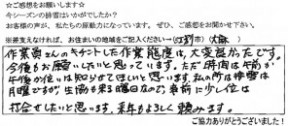 ☆ご感想をお願いします☆
今シーズンの除雪はいかがでしたか？
お客様の声が、私たちの原動力になっています。ぜひ、ご感想をお聞かせ下さい。
※差支えなければ、お住まいの地域をご記入ください→( 江別 市)( 大麻 )
作業員さんのキチントした作業態度は、大変良かったです。
今後もお願いしたいと思っています。ただ時間は午前か
午後か位は知らせてほしいと思います。私の所は排雪は
月曜ですが、生協も来る曜日なので、事前に少し位は
打合せしたいと思います。来年もよろしく頼みます。
ご協力ありがとうございました！